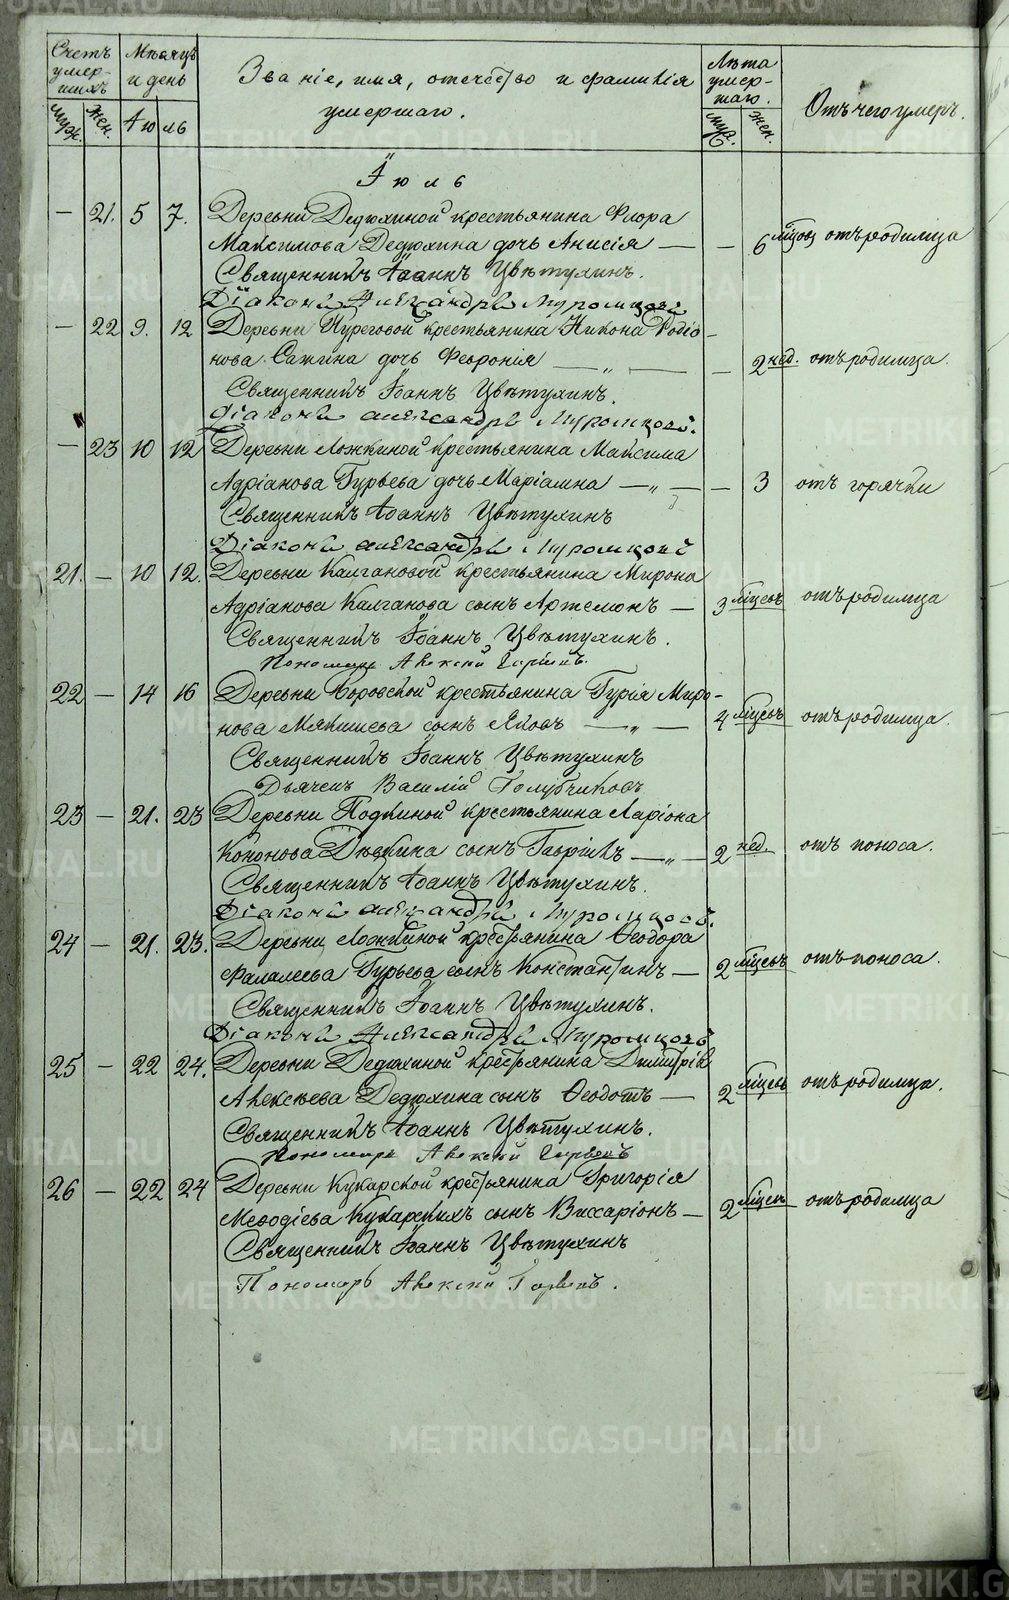 Счетъ умер-шихъ
Мѣсяцъ и день
Званіе, имя, отечество и фамилія умершаго.
Лѣта умер-шаго.
Отъ чего умеръ.
муж. жен. Іюль муж. жен.
Іюль
— 21. 5 7. Деревни Дедюхиной крестьянина Флора
Максимова Дедюхина дочь Анисія — — 6 мѣсяц отъ родимца
Священникъ Іоаннъ Цвѣтухинъ.
Діаконъ Александръ
— 22 9. 12 Деревни крестьянина Никона Родіо-
нова Сажина дочь Февронія — „ — — 2 нед. отъ родимца.
Священникъ Іоаннъ Цвѣтухинъ.
Діаконъ Александръ
— 23 10 12 Деревни Ложкиной крестьянина Максима
Адріанова Гурьева дочь Маріамна — „ — — 3 отъ горячки
Священникъ Іоаннъ Цвѣтухинъ
Діаконъ Александръ
21. — 10 12. Деревни Калгановой крестьянина Мирона
Адріанова Калганова сынъ Артемонъ — 3 мѣсец отъ родимца
Священникъ Іоаннъ Цвѣтухинъ.
Пономарь
22 — 14 16 Деревни Боровской крестьянина Гурія Миро-
нова Мякишева сынъ Яковъ — „ — 4 мѣсец отъ родимца.
Священникъ Іоаннъ Цвѣтухинъ
Дьячекъ Василій Голубчиковъ
23 — 21. 23 Деревни крестьянина Ларіона
Кононова сынъ Гавріилъ — „ — 2 нед. отъ поноса.
Священникъ Іоаннъ Цвѣтухинъ.
Діаконъ Александръ
24 — 21. 23. Деревни Ложкиной крестьянина Ѳеодора
Фалалеева Гурьева сынъ Константинъ — 2 мѣсец отъ поноса.
Священникъ Іоаннъ Цвѣтухинъ.
Діаконъ Александръ
25 — 22 24. Деревни Дедюхиной крестьянина Димитрія
Алексѣева Дедюхина сынъ Ѳеодотъ — 2 мѣсец отъ родимца.
Священникъ Іоаннъ Цвѣтухинъ.
Пономарь
26 — 22 24 Деревни Кукарской крестьянина Григорія
Меѳодіева Кукарскихъ сынъ Виссаріонъ — 2 мѣсец отъ родимца
Священникъ Іоаннъ Цвѣтухинъ
Пономарь
METRIKI.GASO-URAL.RU